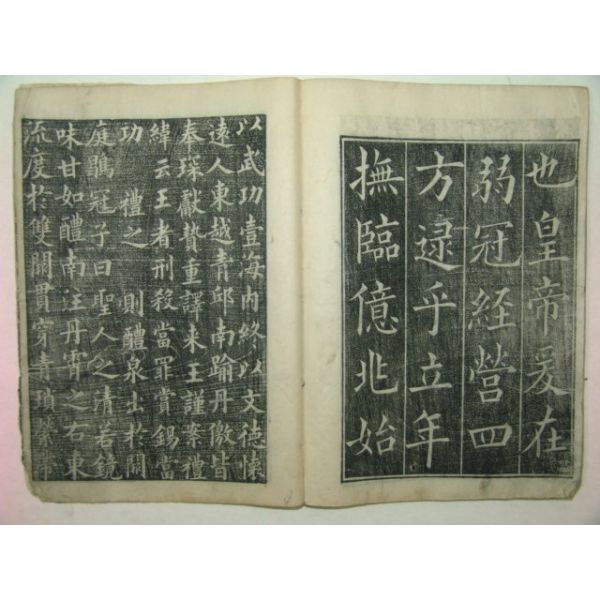 也皇帝爰在
弱冠経營四
方逮乎立年
撫臨億兆始
以武功壹海内終以文德懷
遠人東越青邱南踰丹徼皆
奉琛獻贄重譯来王謹案禮
緯云王者刑殺當罪賞錫當
功 禮之 則醴泉出於闕
庭鶡冠子曰聖人之清若鏡
味甘如醴南注丹霄之右東
流度於雙闕貫穿青瑣縈帶